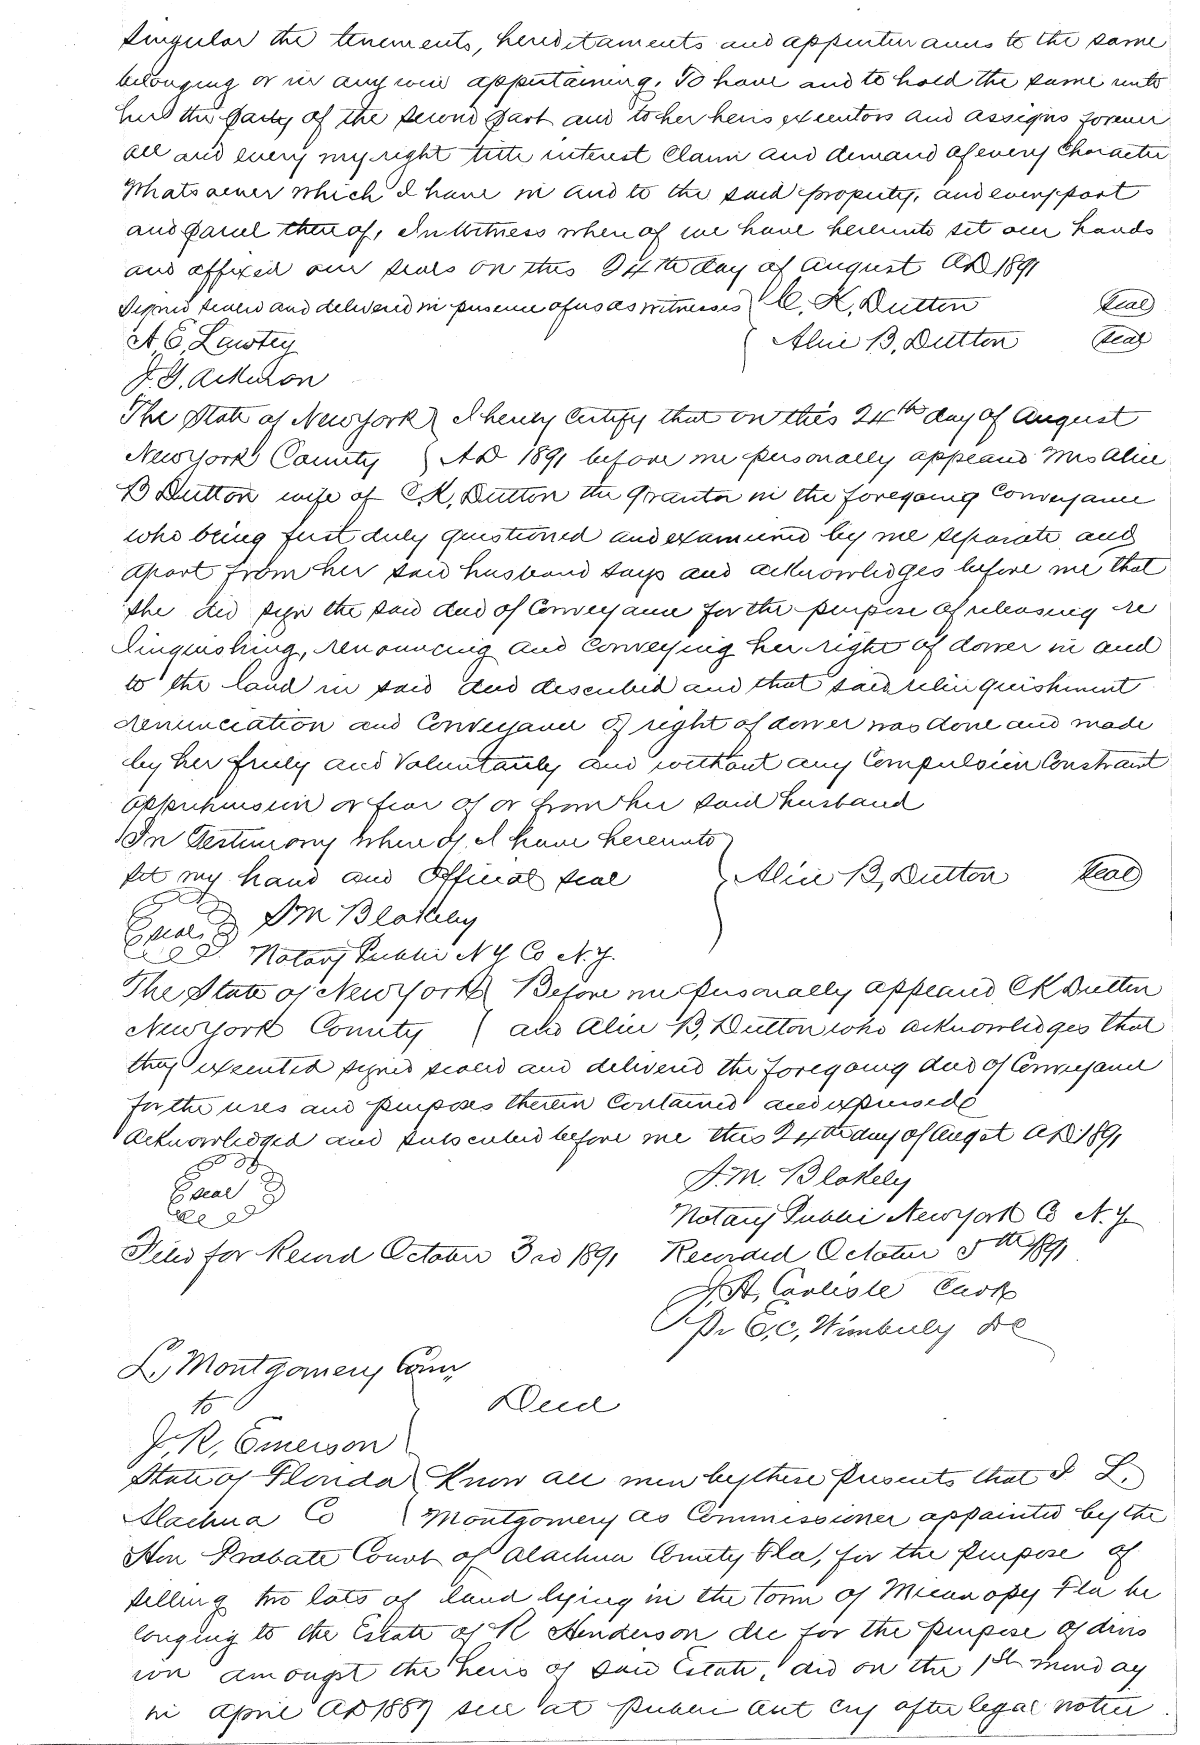 Singular the tenements, hereditaments and appurtenances to the same
belonging or in any wise appertaining, To have and to hold the same unto
her the party of the second part and to her heirs executors and assigns forever
all and every my right title interest Claim and demand of every Character
Whatsoever which I have in and to the said property, and every part
and parcel thereof, In Witness whereof we have hereunto set our hands
and affixed our seals on this 24th day of August AD 1891
Signed sealed and delivered in presence of us as witnesses } C. K. Dutton (Seal)
A. E. Lawtey } Alice B. Dutton (Seal)
J. G. Atkinson
The State of New York } I hereby Certify that on this 24th day of August
New York County } AD 1891 before me personally appeared Mrs Alice
B Dutton wife of C.K. Dutton the Grantor in the foregoing Conveyance
who being first duly questioned and examined by me separate and
apart from her said husband says and acknowledges before me that
she did sign the said deed of Conveyance for the purpose of releasing re
linquishing, renouncing and conveying her right of dower in and
to the land in said deed described and that said relinquishment
renunciation and Conveyance of right of dower was done and made
by her freely and Voluntarily and without any Compulsion Constraint
apprehension or fear of or from her said husband
In Testimony whereof I have hereunto
set my hand and Official seal } Alice B, Dutton (Seal)
(seal) J M Blakely
Notary Public N Y Co N.Y.
The State of New York } Before me personally appeared C K Dutton
New York County } and Alice B, Dutton who acknowledges that
they executed signed sealed and delivered the foregoing deed of Conveyance
for the uses and purposes therein Contained and expressed
Acknowledged and subscribed before me this 24th day of Augst AD 1891
(seal) J. M. Blakely
Notary Public New York Co N.Y.
Filed for Record October 3rd 1891 Recorded October 5th 1891
J. A. Carlisle Clerk
Pr E, C, Wimberly DC
L, Montgomery Com,
to } Deed
J. R, Emerson
State of Florida } Know all men by these Presents that I L.
Alachua Co } Montgomery as Commissioner appointed by the
Hon Probate Court of Alachua County Fla, for the purpose of
selling two lots of land lying in the town of Micanopy Fla be
longing to the Estate of R Henderson dec for the purpose of divis
ion amongst the heirs of said Estate, did on the 1st Monday
in April AD 1887 sell at public out cry after legal notice